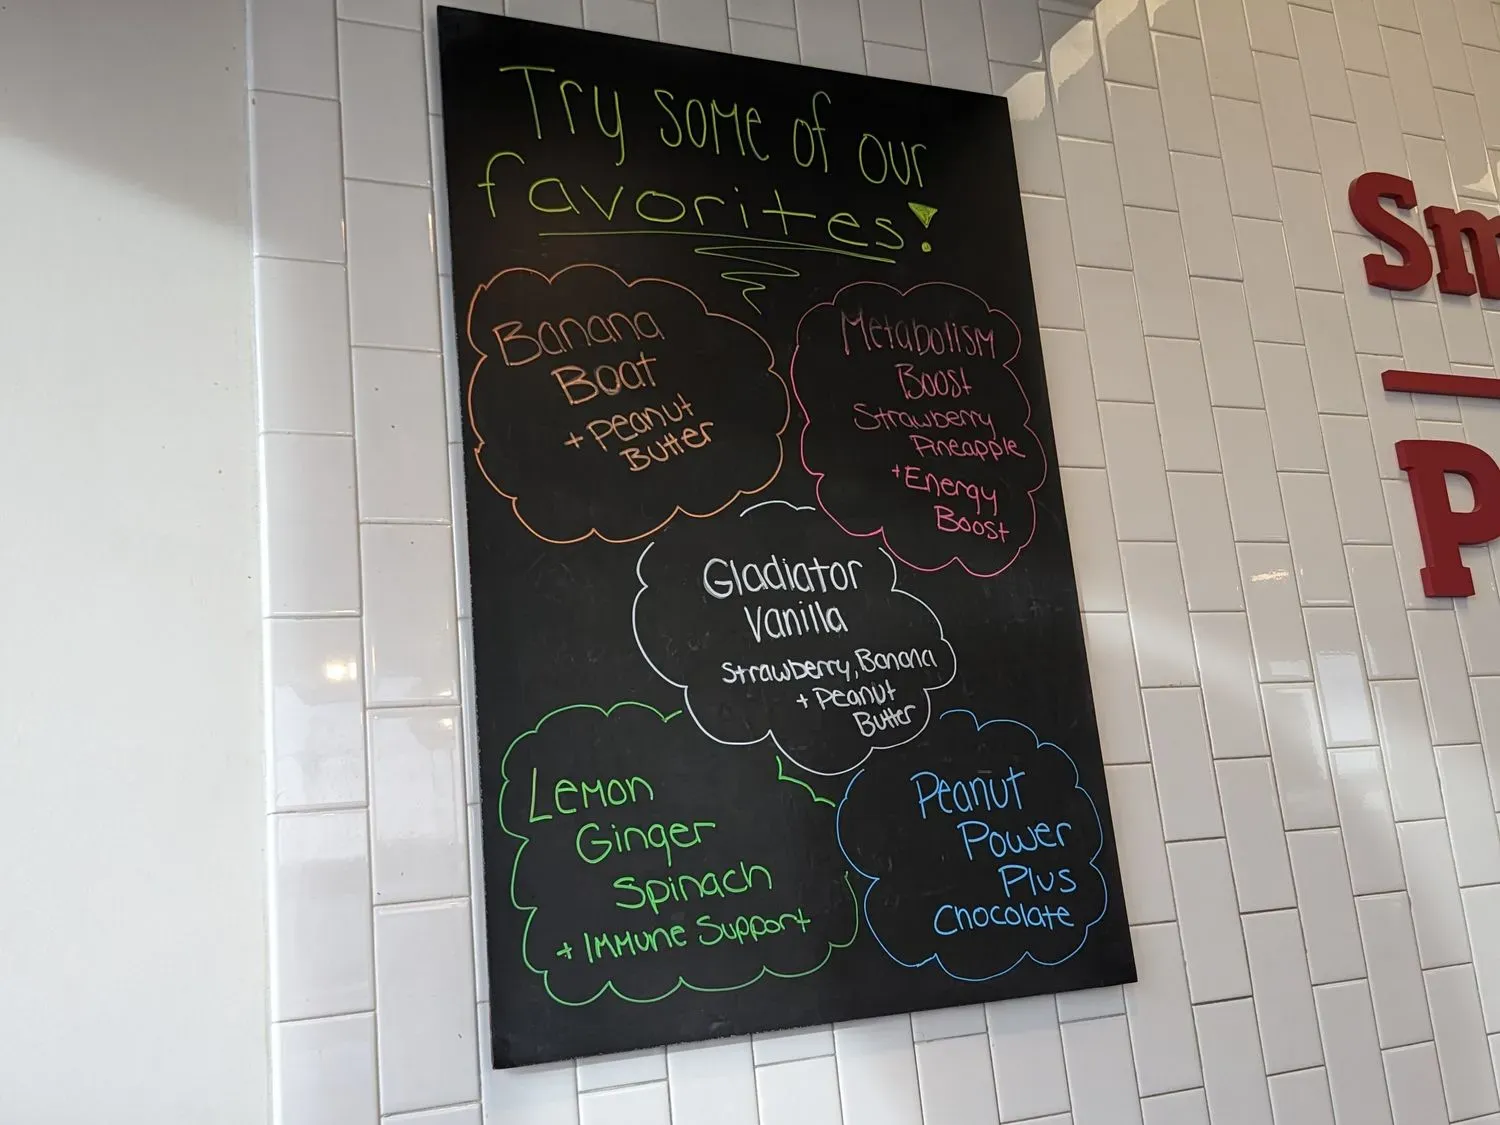 Try some of our
favorites!
Banana
Boat
+ Peanut
Butter
Metabolism
Boost
Strawberry
Pineapple
+ Energy
Boost
Gladiator
Vanilla
Strawberry, Banana
+ Peanut
Butter
Lemon
Ginger
Spinach
+ Immune Support
Peanut
Power
Plus
Chocolate
Sm
P